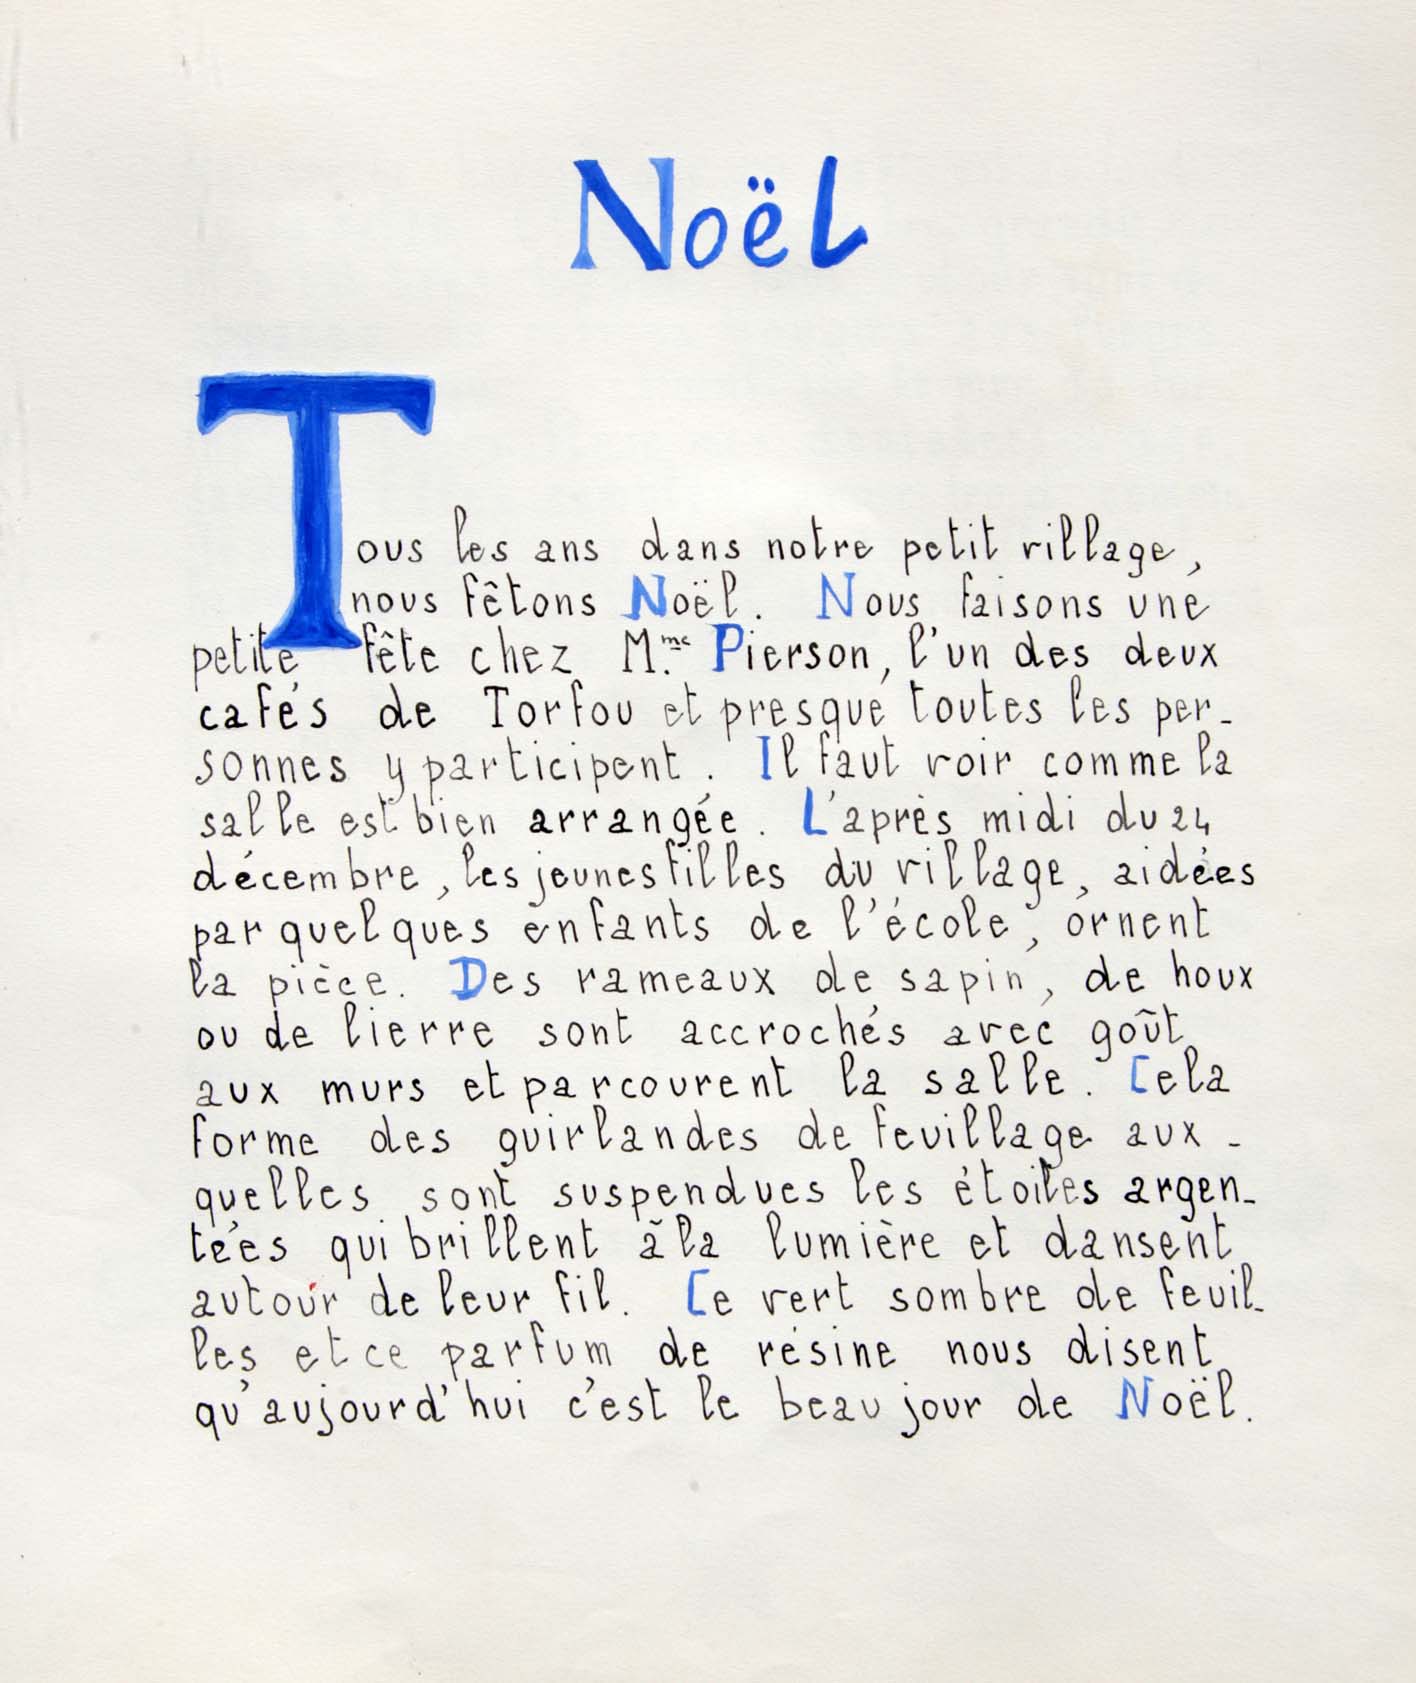 Noël
Tous les ans dans notre petit village,
nous fêtons Noël. Nous faisons une
petite fête chez Mme Pierson, l'un des deux
cafés de Torfou et presque toutes les per-
sonnes y participent. Il faut voir comme la
salle est bien arrangée. L'après midi du 24
décembre, les jeunes filles du village, aidées
par quelques enfants de l'école, ornent
la pièce. Des rameaux de sapin, de houx
ou de lierre sont accrochés avec goût
aux murs et parcourent la salle. Cela
forme des guirlandes de feuillage aux-
quelles sont suspendues les étoiles argen-
tées qui brillent à la lumière et dansent
autour de leur fil. Ce vert sombre de feuil-
les et ce parfum de résine nous disent
qu'aujourd'hui c'est le beau jour de Noël.